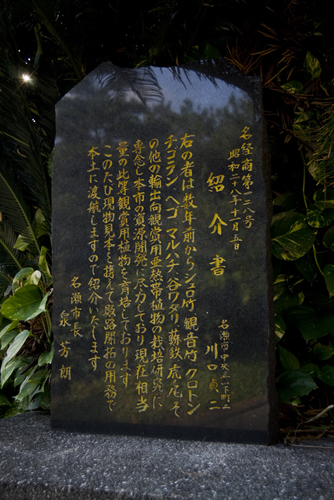 名経商第一二八号
昭和二十八年十一月五日
紹介書
名瀬市中央二一下町二
川口貞二
右の者は数年前からシュロ竹 觀音竹 クロトン
チコテン ヘゴ マルハチ 谷ワタリ 蘇鉄 虎ノ尾 そ
の他の輸出向觀賞用亜熱帯植物の栽培研究に
専念し本市の資源開発に尽力しており現在相当
量の此等觀賞用植物を育培しております
このたび現物見本を携えて販路開拓の用務で
本土に渡航しますので紹介いたします
名瀬市長
泉芳朗